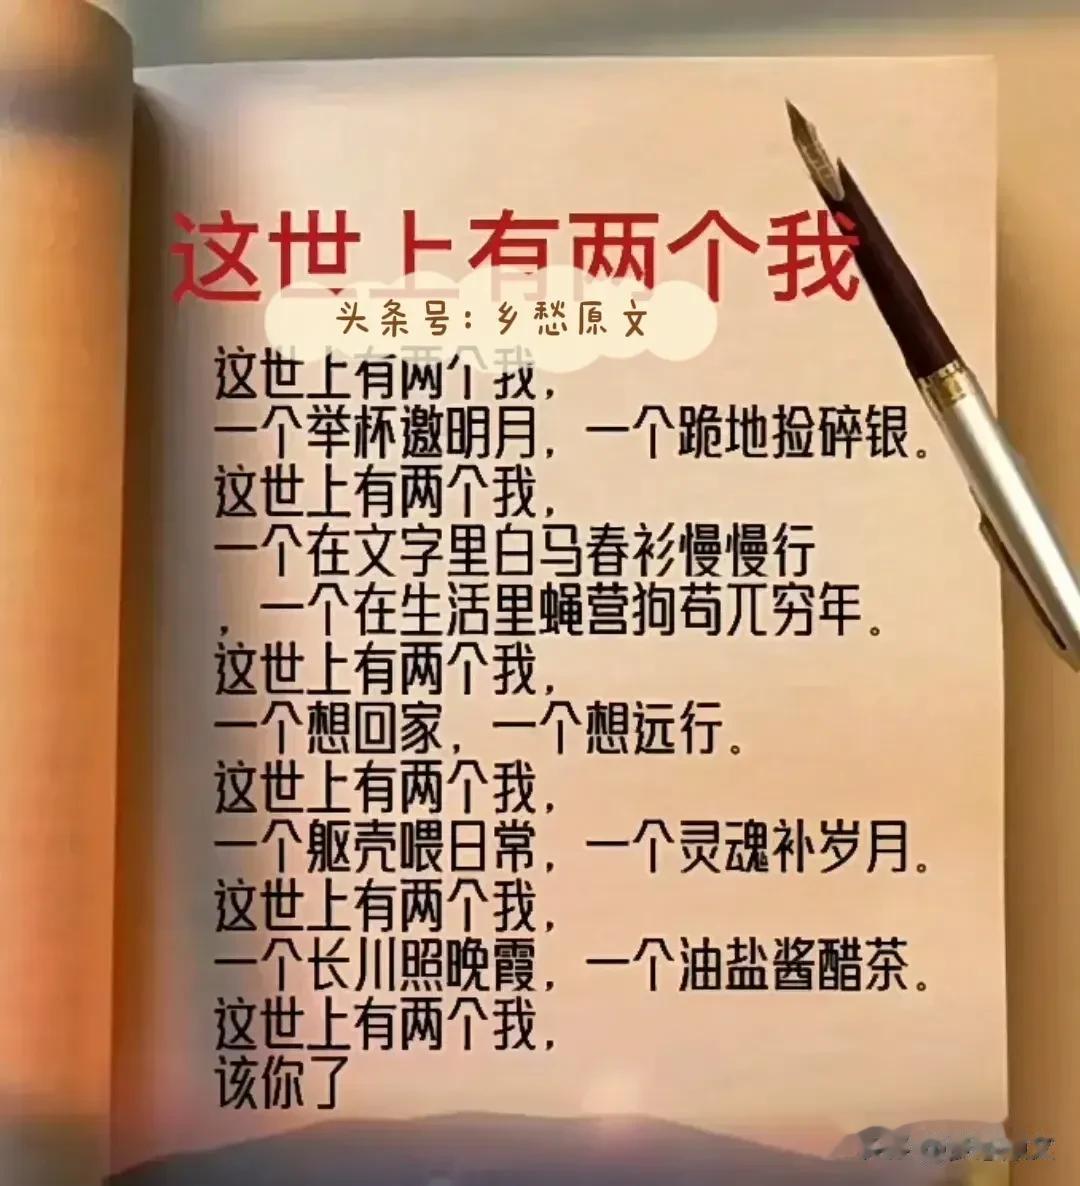 这世上有两个我
头条号:乡愁原文
这世上有两个我,
一个举杯邀明月,一个跪地捡碎银。
这世上有两个我,
一个在文字里白马春衫慢慢行
,一个在生活里蝇营狗苟兀穷年。
这世上有两个我,
一个想回家,一个想远行。
这世上有两个我,
一个躯壳喂日常,一个灵魂补岁月。
这世上有两个我,
一个长川照晚霞,一个油盐酱醋茶。
这世上有两个我,
该你了